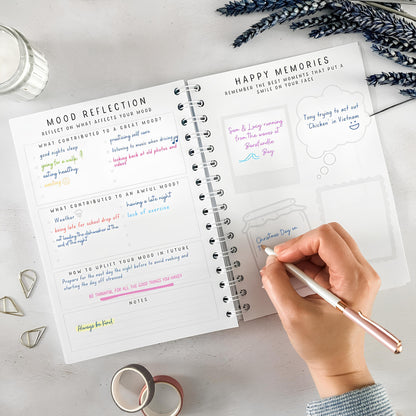 MOOD REFLECTION
REFLECT ON WHAT AFFECTS YOUR MOOD
WHAT CONTRIBUTED TO A GREAT MOOD?
good nights sleep
going for a walk
eating healthy
reading
practising self care
listening to music when driving
looking back at old photos and
videos
WHAT CONTRIBUTED TO AN AWFUL MOOD?
Weather
being late for school drop off
not loading the dishwasher at the
end of the night
having a late night
lack of exercise
HOW TO UPLIFT YOUR MOOD IN FUTURE
Prepare for the next day the night before to avoid rushing and
starting the day off stressed
BE THANKFUL FOR ALL THE GOOD THINGS YOU HAVE!!
NOTES
Always be Kind!
HAPPY MEMORIES
REMEMBER THE BEST MOMENTS THAT PUT A
SMILE ON YOUR FACE
Sam & Lucy running
from the waves at
Bay
Tony trying to act out
'Chicken' in Vietnam
Christmas Day in